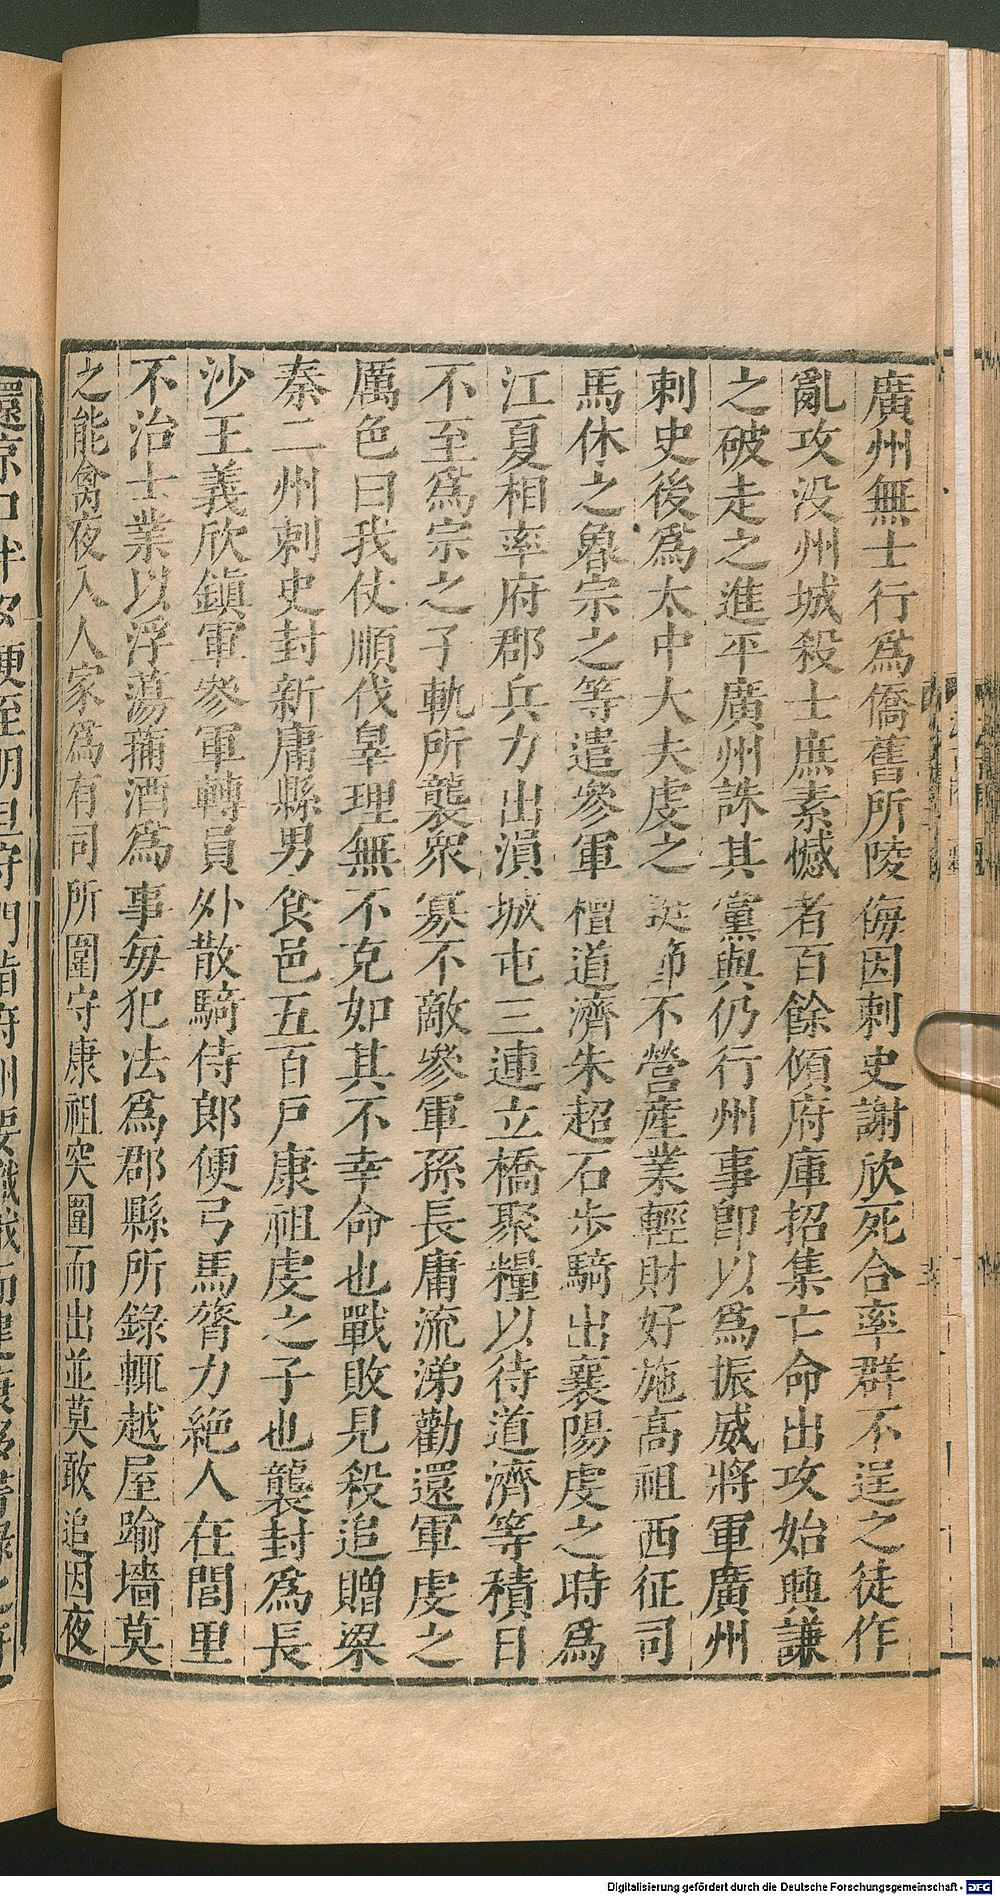 廣州無士行為僑舊所陵侮因刺史謝欣死合率群不逞之徒作
亂攻没州城殺士庶素憾者百餘傾府庫招集亡命出攻始興謙
之破走之進平廣州誅其黨與仍行州事即以為振威將軍廣州
刺史後為太中大夫虔之誕節不營產業輕財好施高祖西征司
馬休之魯宗之等遣參軍檀道濟朱超石步騎出襄陽虔之時為
江夏相率府郡兵力出溳城屯三連立橋聚糧以待道濟等積日
不至為宗之子軌所襲衆寡不敵參軍孫長庸流涕勸還軍虔之
厲色曰我仗順伐辠理無不克如其不幸命也戰敗見殺追贈梁
秦二州刺史封新康縣男食邑五百戶康祖虔之子也襲封為長
沙王義欣鎮軍參軍轉員外散騎侍郎便弓馬膂力絶人在閭里
不治士業以浮蕩蒱酒為事每犯法為郡縣所錄輒越屋踰墻莫
之能禽夜入人家為有司所圍守康祖突圍而出並莫敢追因夜
便至明旦守門
Digitalisierung gefördert durch die Deutsche Forschungsgemeinschaft - DFG